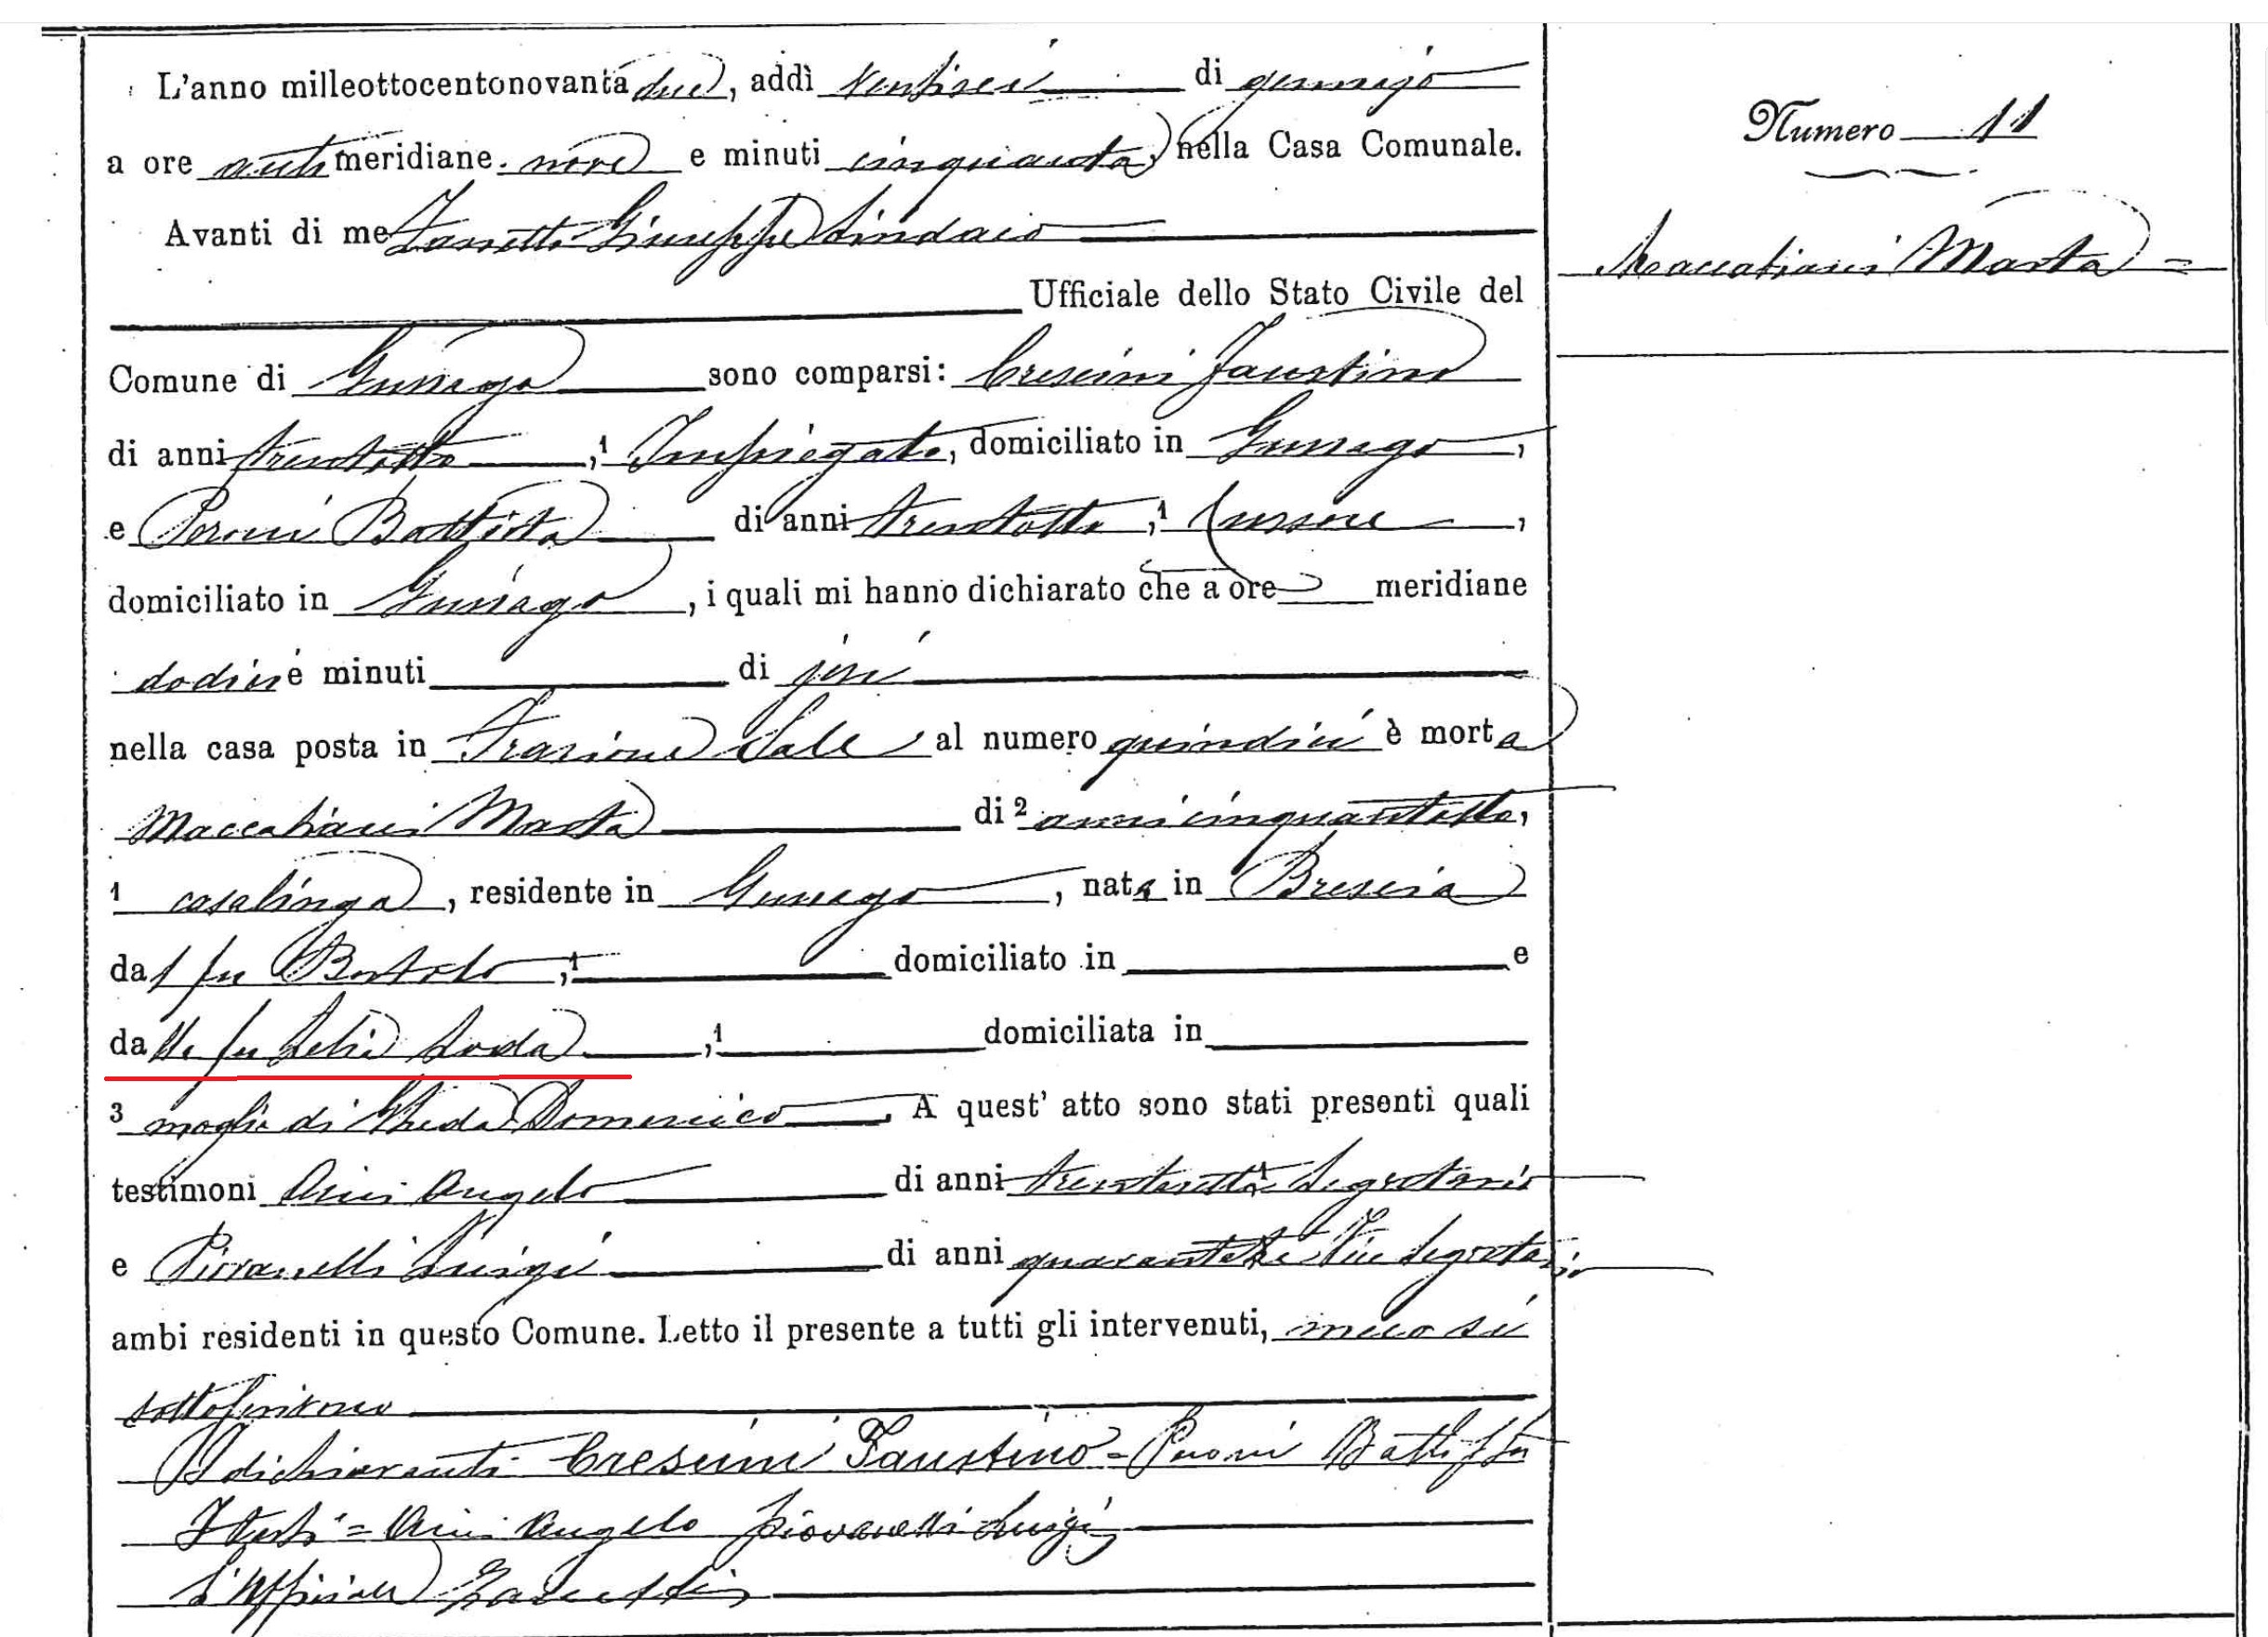 L'anno milleottocentonovantadue, addì ventisei di gennajo
a ore antimeridiane nove e minuti cinquanta, nella Casa Comunale.
Avanti di me Zanetti Giuseppe Sindaco
Ufficiale dello Stato Civile del
Comune di Gussago sono comparsi: Crescini Faustino
di anni trentotto,¹ Impiegato, domiciliato in Gussago,
e Peroni Battista di anni trentotto,¹ Cursore,
domiciliato in Gussago, i quali mi hanno dichiarato che a ore meridiane
dodici e minuti di jeri
nella casa posta in Frazione Sale al numero quindici è morta
Maccabiani Marta di ² anni cinquantotto,
¹ casalinga, residente in Gussago, nata in Brescia
dal fu Bortolo,¹ domiciliato in e
dalla fu ,¹ domiciliata in
³ moglie di Gheda Domenico. A quest' atto sono stati presenti quali
testimoni Angelo di anni trentasette¹ Segretario
e Piovanelli Luigi di anni quarantatre Vice Segretario
ambi residenti in questo Comune. Letto il presente a tutti gli intervenuti, meco si
sottoscrivono
I dichiaranti Crescini Faustino = Peroni Battista
I testi = Angelo Piovanelli Luigi
L'Ufficiale Zanetti
Numero 11
Maccabiani Marta =